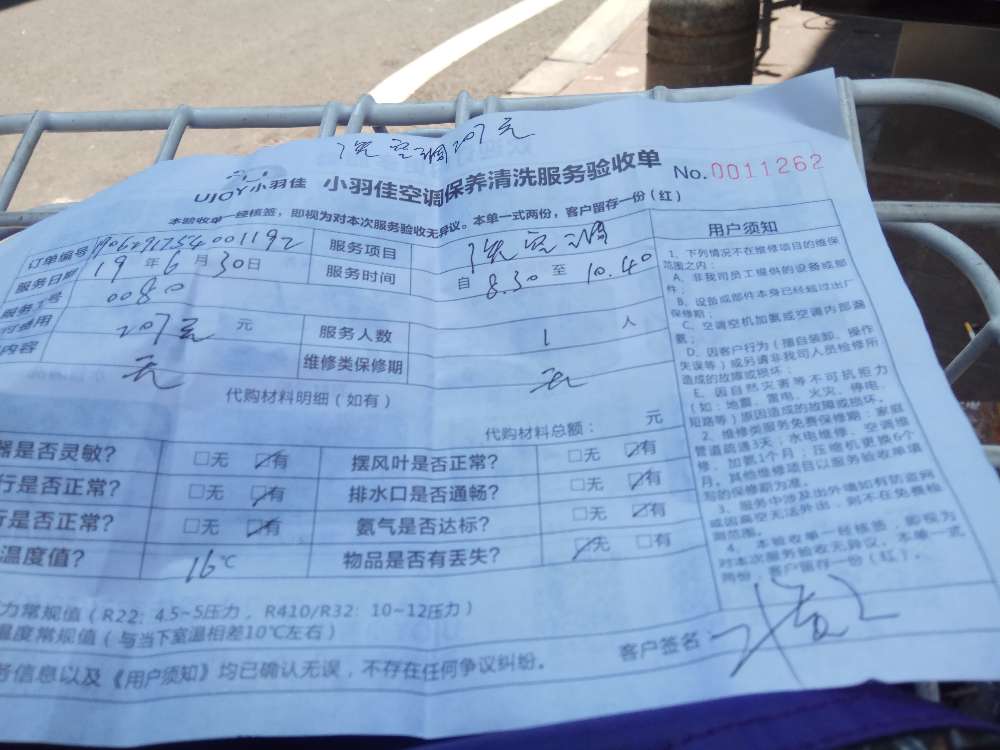 洗空调207元
UJOY小羽佳 小羽佳空调保养清洗服务验收单 No.0011262
本验收单一经核签，即视为对本次服务验收无异议。本单一式两份，客户留存一份（红）
订单编号 服务项目 洗空调
服务日期 19年6月30日 服务时间 自 8.30 至 10.40
服务工号 0080
付费用 207元 元 服务人数 1 人
内容 无 维修类保修期 无
代购材料明细（如有）
代购材料总额： 元
器是否灵敏？ □无 ☑有 摆风叶是否正常？ □无 ☑有
行是否正常？ □无 ☑有 排水口是否通畅？ □无 ☑有
行是否正常？ □无 ☑有 氨气是否达标？ □无 ☑有
温度值？ 16℃ 物品是否有丢失？ ☑无 □有
力常规值（R22：4.5~5压力，R410/R32：10~12压力）
温度常规值（与当下室温相差10℃左右）
务信息以及《用户须知》均已确认无误，不存在任何争议纠纷。
客户签名：
用户须知
1、下列情况不在维修项目的维保
范围之内：
A、非我司员工提供的设备或部
件；
B、设备或部件本身已经超过出厂
保修期；
C、空调空机加氨或空调内部漏
氨；
D、因客户行为（擅自装卸、操作
失误等）或另请非我司人员检修所
造成的故障或损坏；
E、因自然灾害等不可抗拒力
（如：地震、雷电、火灾、停电、
短路等）原因造成的故障或损坏。
2、维修类服务免费保修期：家庭
管道疏通3天；水电维修、空调维
修、加氨1个月；压缩机更换6个
月。其他维修项目以服务验收单填
写的保修期为准。
3、服务中涉及出外墙如有防盗网
或因高空无法外出，则不在免费检
测范围。
4、本验收单一经核签，即视为
对本次服务验收无异议。本单一式
两份，客户留存一份（红）。